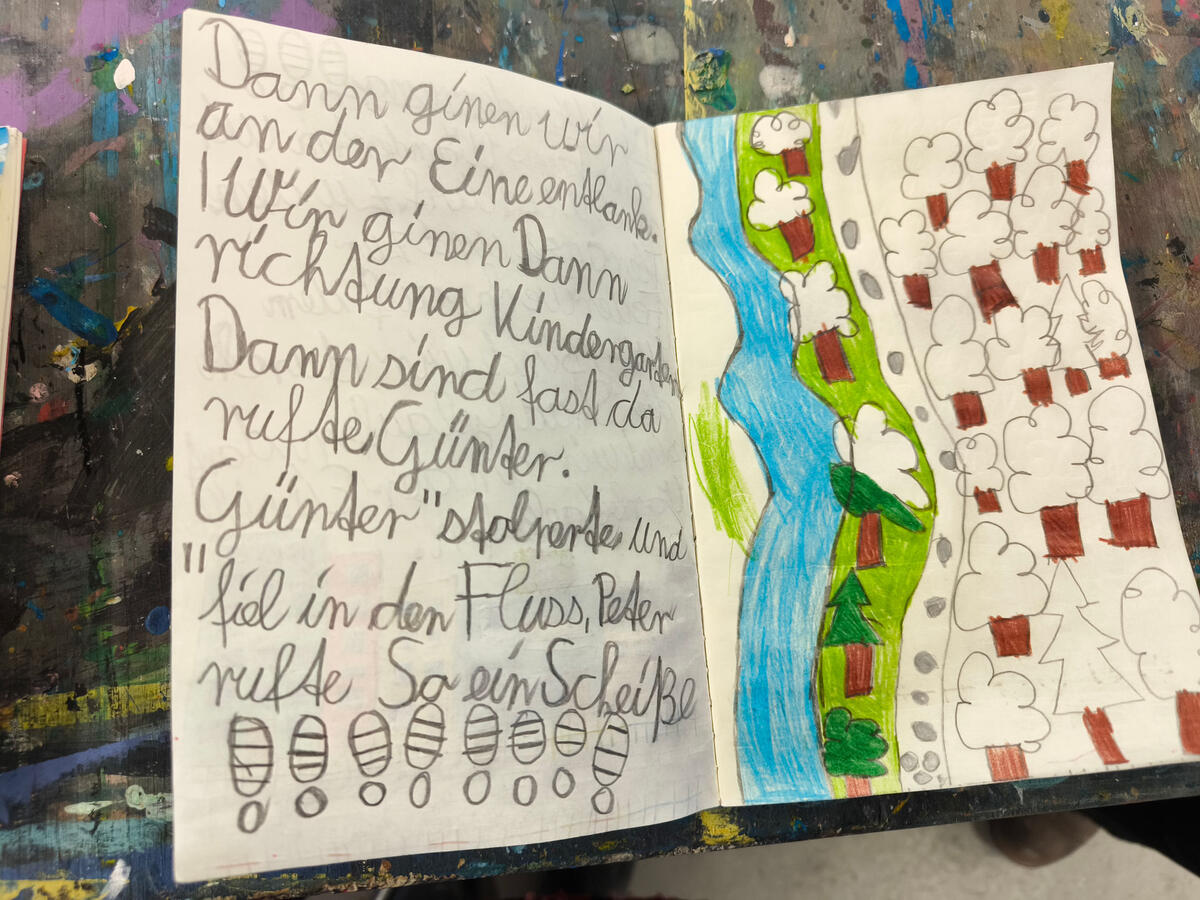 Dann ginen wir
an der Eine entlank.
Wir ginen Dann
richtung Kindergarten
Dann sind fast da
rufte Günter.
Günter "stolperte und
"fiel in den Fluss, Peter
rufte So ein Scheiße
!!!!!!!!